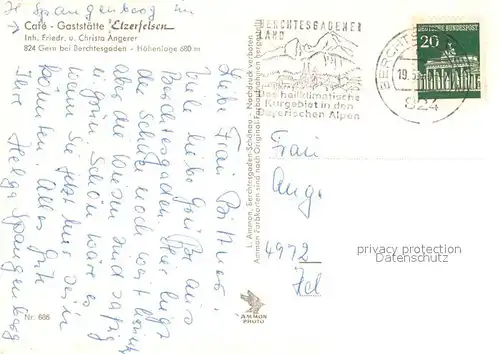 H. Spangenberg im
Café - Gaststätte "Etzerfelsen"
Inh. Friedr. u. Christa Angerer
824 Gern bei Berchtesgaden - Höhenlage 680 m
Liebe Frau
viele liebe Grüße
Berchtesgaden. Hier liegt
der Schnee noch weit
aber die Wiesen sind saftig
grün. Schön wäre es
wenn Sie jetzt hier sein
könnten. Alles Gute
Ihre Helga Spangenberg
Nr. 686
L. Ammon, Berchtesgaden-Schönau - Nachdruck verboten
Ammon Farbkarten sind nach Original-Farbaufnahmen hergest.
AMMON
PHOTO
BERCHTESGADENER
LAND
Das heilklimatische
Kurgebiet in den
Bayerischen Alpen
824
DEUTSCHE BUNDESPOST
20
Frau
4972
copyright protected
www.ansichtskartenversand.com